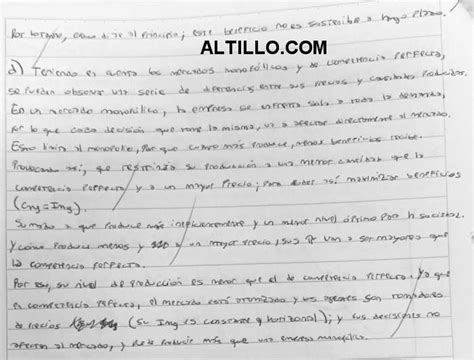 Por lo tanto, como dije al principio, este beneficio no es sostenible a largo plazo.
ALTILLO.COM
d) Teniendo en cuenta los mercados monopólicos y de competencia perfecta,
se pueden observar una serie de diferencias entre sus precios y cantidades producidas.
En un mercado monopólico, la empresa se enfrenta sola a toda la demanda,
por lo que cada decisión que tome la misma, va a afectar directamente al mercado.
Esto limita al monopolio, porque cuanto más produce, menos beneficios recibe.
Provocando así, que restrinja su producción a una menor cantidad que la
competencia perfecta y a un mayor precio; para poder así maximizar beneficios
(Cmg = Img).
Sumado a que produce más ineficientemente y un menor nivel óptimo para la sociedad.
Y como produce menos y a un mayor precio, sus π van a ser mayores que
la competencia perfecta.
Por eso, su nivel de producción es menor que el de competencia perfecta. Ya que
en competencia perfecta, el mercado está atomizado y los agentes son tomadores
de precios (su Img es constante y horizontal); y sus decisiones no
afectan al mercado, y puede producir más que una empresa monopólica.